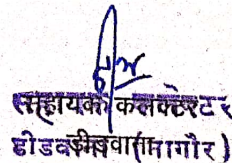 सहायक कलक्टर
डीडवाना (नागौर)